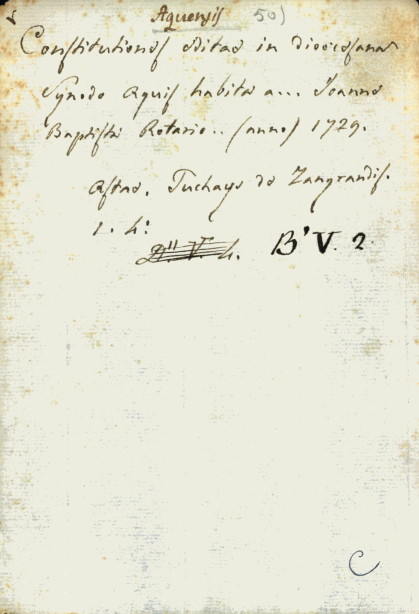 Aquensis 50)
Constitutiones editae in dioecesana
Synodo Aquis habita a... Joanne
Baptista Rotario.. (anno) 1729.
Astae. Tuchays de Zangrandis.
1. 4:
4. B' V. 2.
C